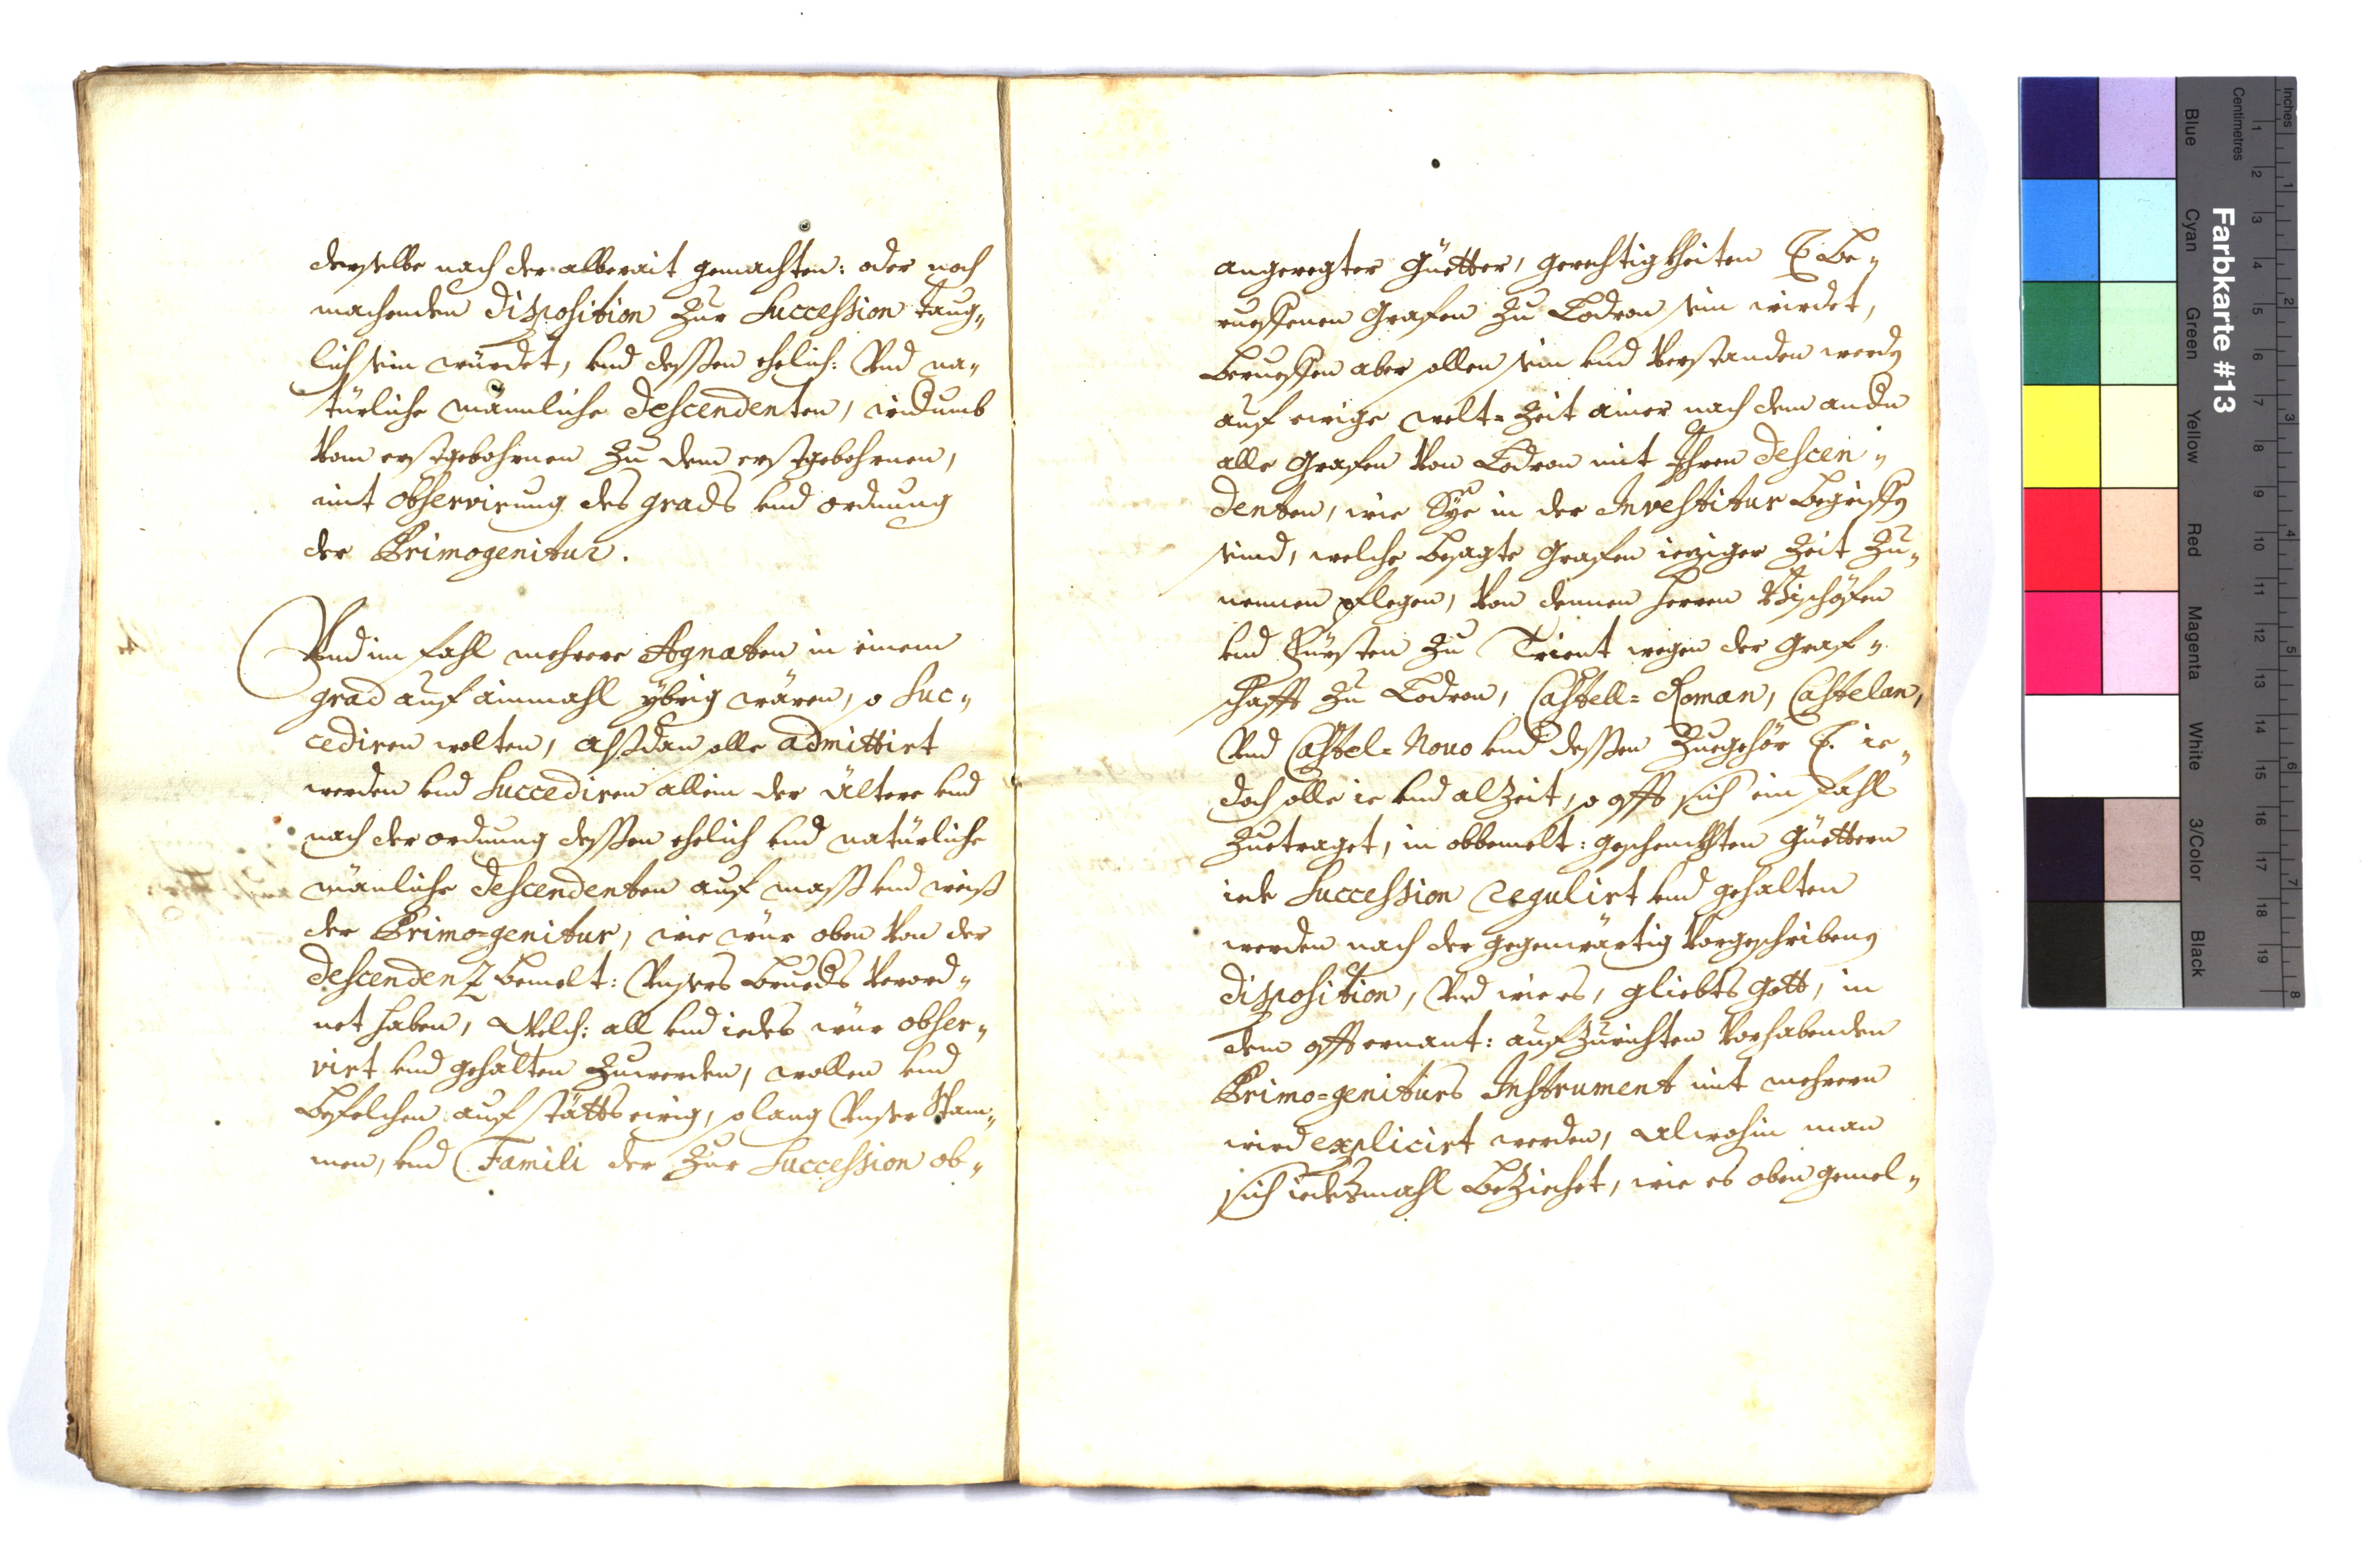 derselbe nach der alberait gemachten: oder noch
machenden disposition zur Succession taug„
lich sein würdet, und dessen ehelich: Und na„
türliche männliche descendenten, widumb
vom erstgebohrnen zu dem erstgebohrnen,
mit observirung des grads und ordnung
der Primogenitur.
Und im fahl mehrere Agnaten in einem
grad auf ainmahl ybrig wären, so suc„
cediren wolten, alßdan solle admittirt
werden und succediren allein der ältere und
nach der ordnung dessen ehelich und natürliche
mänliche descendenten auf mass und weiß
der Primo=genitur, wie wür oben von der
descendenz bemelt: Unsers Brueders verord„
net haben, Welch: all und iedes wür obser„
virt und gehalten zuwerden, wollen und
befelchen auf stätts ewig, so lang Unser Stam„
men, und Famili der zur Succession ob„
angeregter Güetter, gerechtigkheiten E. be„
rueffenen Grafen zu Lodron sein wirdet,
berueffen aber sollen sein und verstanden werden
auf ewige welt=Zeit ainer nach dem andern
alle Grafen von Lodron mit Ihren descen„
denten, wie Sye in der Investitur begriffen
seind, welche besagte Grafen ieziger Zeit zu„
nennen pflegen, von dennen Herren Bischöfen
und Fürsten zu Trient wegen der Graf„
schafft zu Lodron, Castell=Roman, Castelan,
Und Castel=Novo und dessen Zuegehör E. ie„
doch solle ie und alzeit, so offt sich ein Fahl
zuetraget, in obbemelt: geschenckhten Güettern
iede Succession regulirt und gehalten
werden nach der gegenwärtig vorgeschribenen
disposition, Und wie es, gliebts Gott, in
dem offternant: aufzurichten vorhabenden
Primo=geniturs Instrument mit mehrern
wird explicirt werden, alwohin man
sich iedesmahl beziehet, wie es oben gemel„
Farbkarte #13
Inches
Centimetres
Blue
Cyan
Green
Yellow
Red
Magenta
White
3/Color
Black